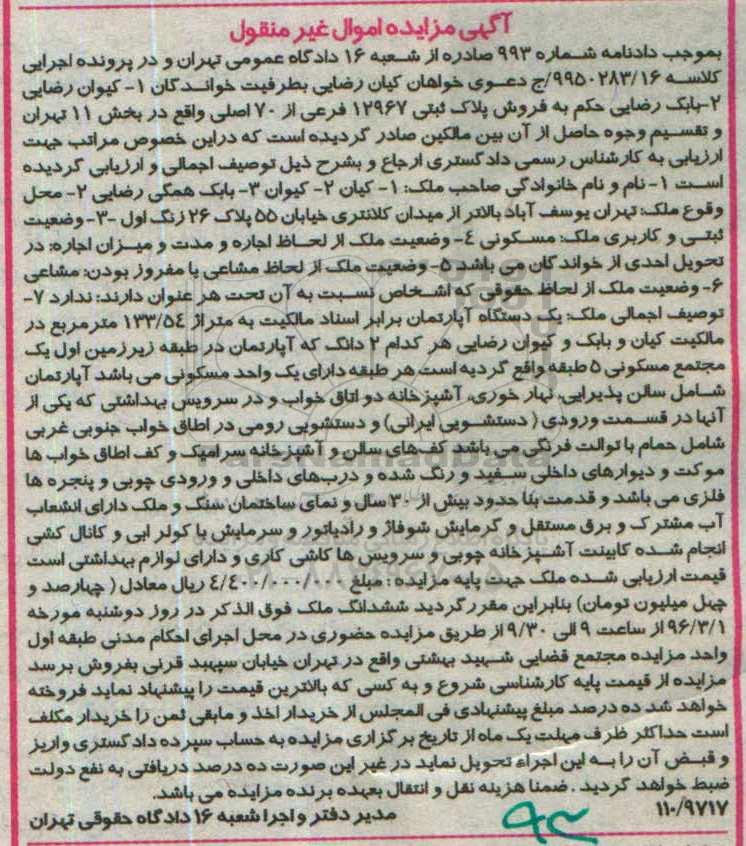 آگهی مزایده اموال غیر منقول
بموجب دادنامه شماره ۹۹۳ صادره از شعبه ۱۶ دادگاه عمومی تهران و در پرونده اجرایی
کلاسه ۹۹۵۰۲۸۳/۱۶/ج دعوی خواهان کیان رضایی بطرفیت خواندگان ۱- کیوان رضایی
۲-بابک رضایی حکم به فروش پلاک ثبتی ۱۲۹۶۷ فرعی از ۷۰ اصلی واقع در بخش ۱۱ تهران
و تقسیم وجوه حاصل از آن بین مالکین صادر گردیده است که دراین خصوص مراتب جهت
ارزیابی به کارشناس رسمی دادگستری ارجاع و بشرح ذیل توصیف اجمالی و ارزیابی گردیده
است ۱- نام و نام خانوادگی صاحب ملک: ۱- کیان ۲- کیوان ۳- بابک همگی رضایی ۲- محل
وقوع ملک: تهران یوسف آباد بالاتر از میدان کلانتری خیابان ۵۵ پلاک ۲۶ زنگ اول -۳- وضعیت
ثبتی و کاربری ملک: مسکونی ۴- وضعیت ملک از لحاظ اجاره و مدت و میزان اجاره: در
تحویل احدی از خواندگان می باشد ۵- وضعیت ملک از لحاظ مشاعی یا مفروز بودن: مشاعی
۶- وضعیت ملک از لحاظ حقوقی که اشخاص نسبت به آن تحت هر عنوان دارند: ندارد ۷-
توصیف اجمالی ملک: یک دستگاه آپارتمان برابر اسناد مالکیت به متراژ ۱۳۳/۵۴ مترمربع در
مالکیت کیان و بابک و کیوان رضایی هر کدام ۲ دانگ که آپارتمان در طبقه زیرزمین اول یک
مجتمع مسکونی ۵ طبقه واقع گردیه است هر طبقه دارای یک واحد مسکونی می باشد آپارتمان
شامل سالن پذیرایی، نهار خوری، آشپزخانه دو اتاق خواب و در سرویس بهداشتی که یکی از
آنها در قسمت ورودی ( دستشویی ایرانی) و دستشویی رومی در اطاق خواب جنوبی غربی
شامل حمام با توالت فرنگی می باشد کف‌های سالن و آشپزخانه سرامیک و کف اطاق خواب ها
موکت و دیوارهای داخلی سفید و رنگ شده و درب‌های داخلی و ورودی چوبی و پنجره ها
فلزی می باشد و قدمت بنا حدود بیش از ۳۰ سال و نمای ساختمان سنگ و ملک دارای انشعاب
آب مشترک و برق مستقل و گرمایش شوفاژ و رادیاتور و سرمایش با کولر ابی و کانال کشی
انجام شده کابینت آشپزخانه چوبی و سرویس ها کاشی کاری و دارای لوازم بهداشتی است
قیمت ارزیابی شده ملک جهت پایه مزایده : مبلغ ۴/۴۰۰/۰۰۰/۰۰۰ ریال معادل ( چهارصد و
چهل میلیون تومان) بنابراین مقررگردید ششدانگ ملک فوق الذکر در روز دوشنبه مورخه
۹۶/۳/۱ از ساعت ۹ الی ۹/۳۰ از طریق مزایده حضوری در محل اجرای احکام مدنی طبقه اول
واحد مزایده مجتمع قضایی شهید بهشتی واقع در تهران خیابان سپهبد قرنی بفروش برسد
مزایده از قیمت پایه کارشناسی شروع و به کسی که بالاترین قیمت را پیشنهاد نماید فروخته
خواهد شد ده درصد مبلغ پیشنهادی فی المجلس از خریدار اخذ و مابقی ثمن را خریدار مکلف
است حداکثر ظرف مهلت یک ماه از تاریخ برگزاری مزایده به حساب سپرده دادگستری واریز
و قبض آن را به این اجراء تحویل نماید در غیر این صورت ده درصد دریافتی به نفع دولت
ضبط خواهد گردید . ضمنا هزینه نقل و انتقال بعهده برنده مزایده می باشد.
۱۱۰/۹۷۱۷ مدیر دفتر و اجرا شعبه ۱۶ دادگاه حقوقی تهران